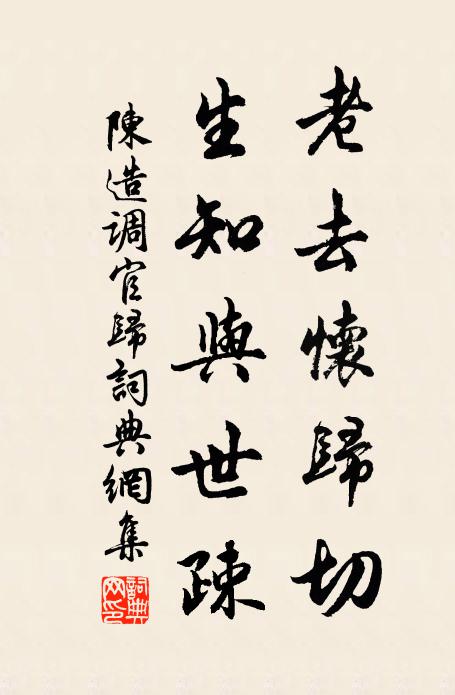 老去懷歸切
生知與世疎
陳造調官歸詞典網集
詞典网印